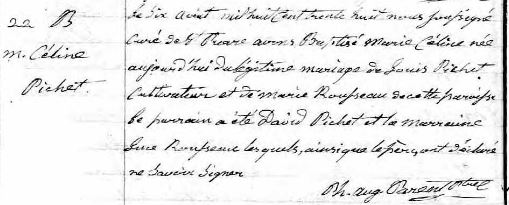 22 B
m. Céline
Pichet.
Le Six Avril mil huit cent trente huit nous soussigné
Curé de St Pierre avons Baptisé Marie Céline née
aujourd'hui du légitime mariage de Louis Pichet
Cultivateur et de Marie Rousseau de cette paroisse
Le parrain a été David Pichet et la marraine
Rousseau lesquels, ainsi que le père, ont déclaré
ne Savoir Signer
Ph. Aug. Parent Ptre